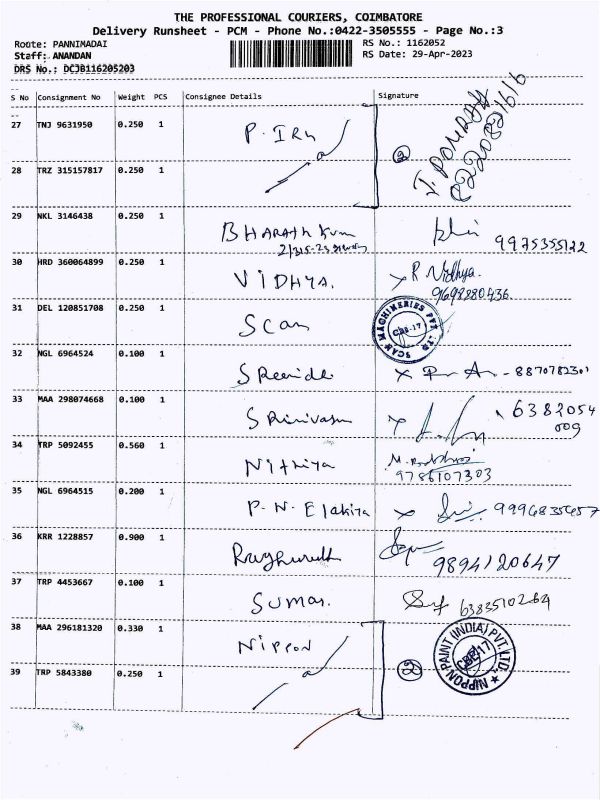 THE PROFESSIONAL COURIERS, COIMBATORE
Delivery Runsheet - PCM - Phone No.:0422-3505555 - Page No.:3
Route: PANNIMADAI
RS No.: 1162052
Staff: ANANDAN
RS Date: 29-Apr-2023
DRS No.: DCJB116205203
S No Consignment No Weight PCS Consignee Details Signature
27 TNJ 9631950 0.250 1 P. IRU
28 TRZ 315157817 0.250 1
2
29 NKL 3146438 0.250 1 BHARATH Kum
9975355122
30 HRD 360064899 0.250 1 VIDHYA. R Vidhya.
9698880436.
31 DEL 120851708 0.250 1 SCAN
SCAN MACHINERIES PVT LTD
CBE-17
32 NGL 6964524 0.100 1 SReenide - 8870782301
33 MAA 298074668 0.100 1 SRinivasan 6382054
009
34 TRP 5092455 0.560 1 Nithiya
9786107303
35 NGL 6964515 0.200 1 P. N. Elakiya 9994835657
36 KRR 1228857 0.900 1 Raghunath
9894120647
37 TRP 4453667 0.100 1 SUMAN. 6383510264
38 MAA 296181320 0.330 1 NIPPON
NIPPON PAINT (INDIA) PVT. LTD.
CBE-17
39 TRP 5843380 0.250 1
2